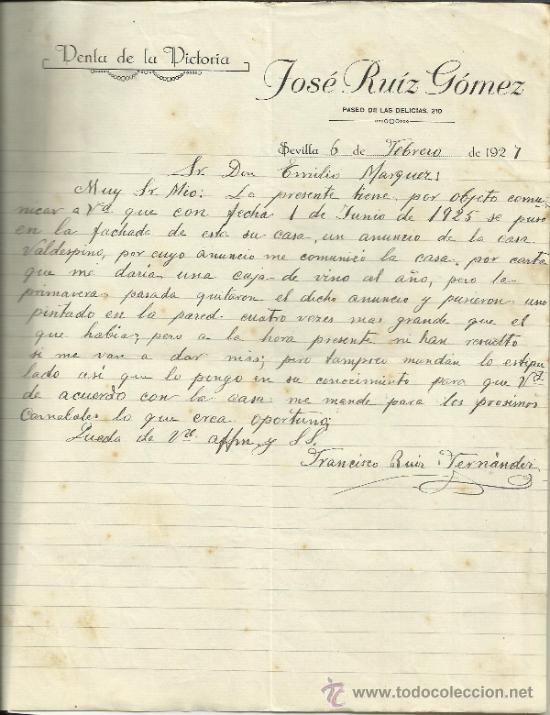 Venta de la Victoria
José Ruíz Gómez
PASEO DE LAS DELICIAS, 210
Sevilla 6 de Febrero de 1927
Sr. Don Emilio Marquez:
Muy Sr. Mio: La presente tiene por objeto comu-
nicar a Vd. que con fecha 1 de Junio de 1925 se puso
en la fachada de esta su casa, un anuncio de la casa
Valdespino, por cuyo anuncio me comunico la casa, por carta
que me daria una caja de vino al año, pero la
primavera pasada quitaron el dicho anuncio y pusieron uno
pintado en la pared cuatro vezes mas grande que el
que habia; pero a la hora presente ni han resuelto
si me van a dar mas; pero tampoco mandan lo estipu-
lado asi que lo pongo en su conocimiento para que Vd.
de acuerdo con la casa me mande para los prosimos
Carnabales lo que crea oportuno;
Queda de Vd. affm y SS.
Francisco Ruiz Fernández
todocoleccion
www.todocoleccion.net